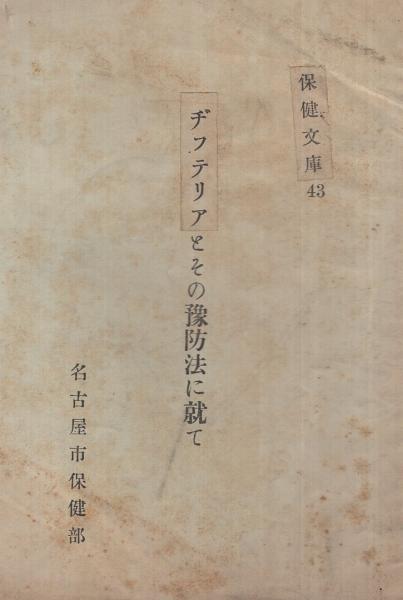 保健文庫43
ヂフテリアとその豫防法に就て
名古屋市保健部